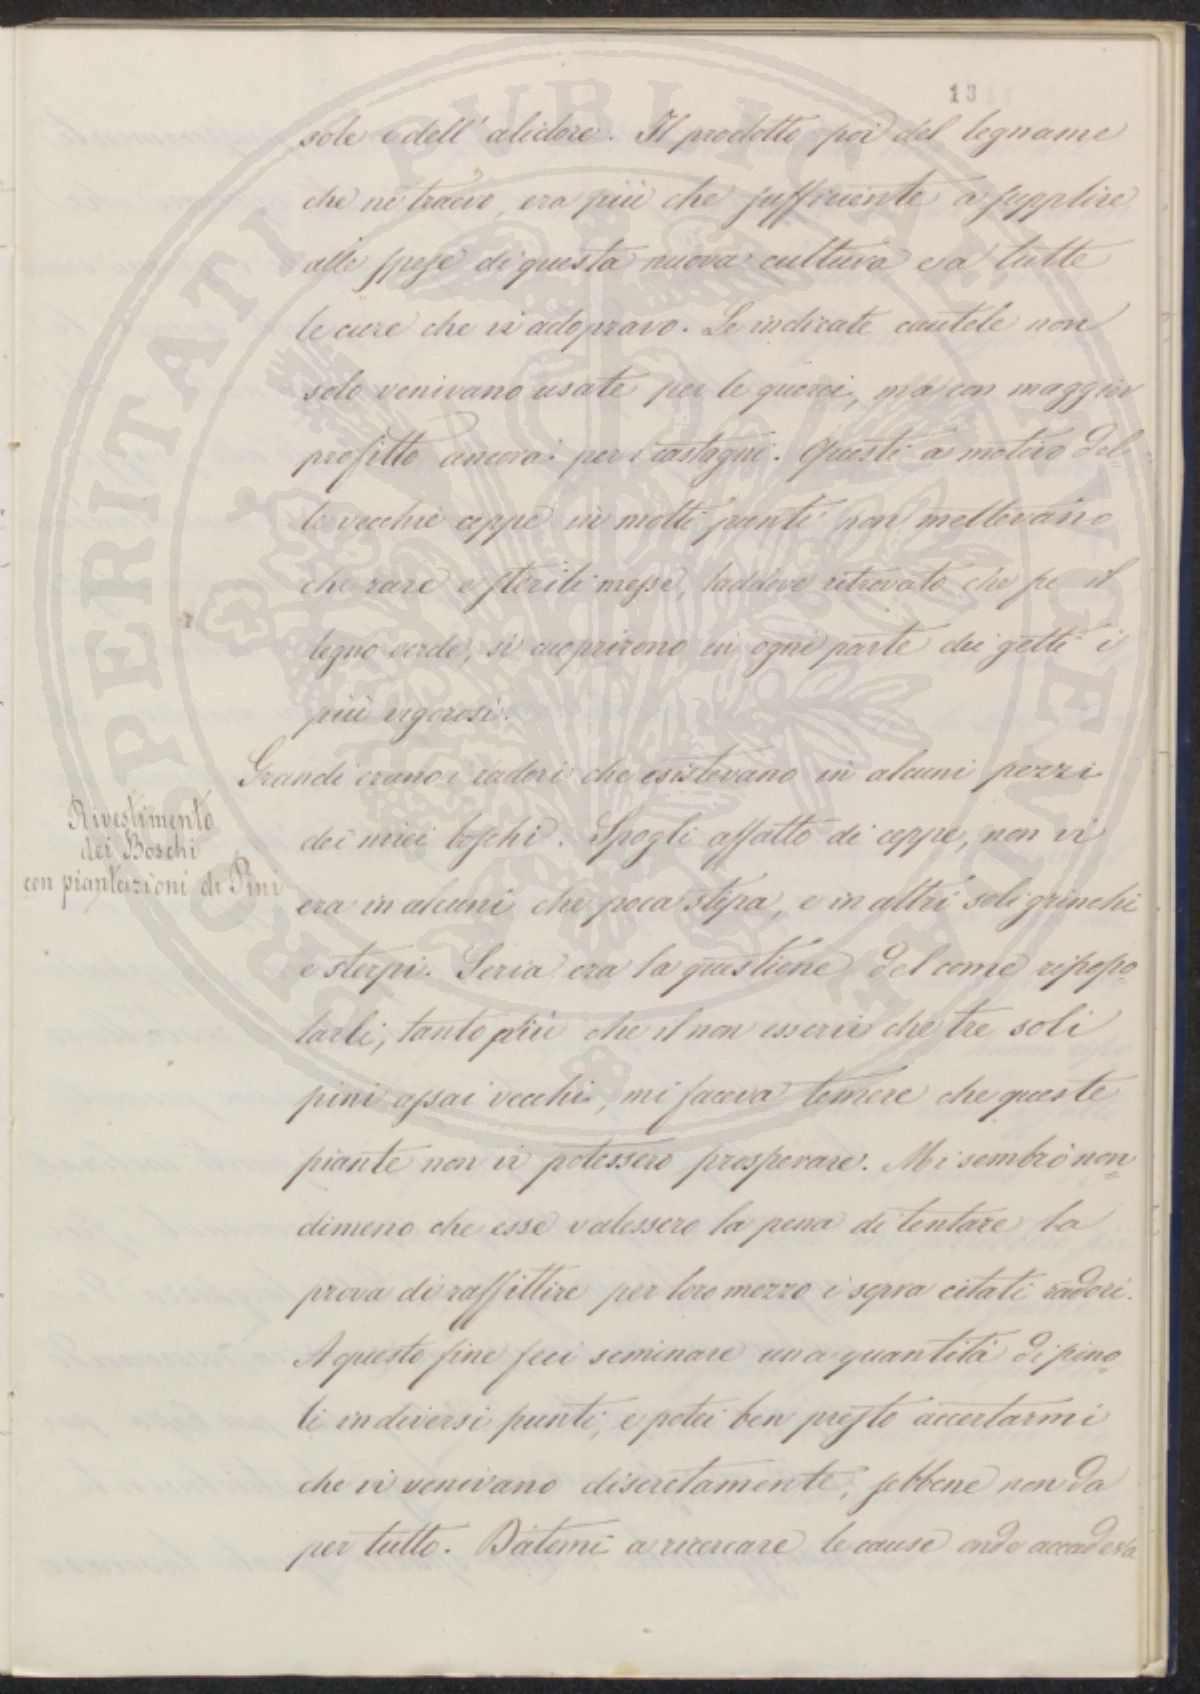 13
sole e dell'alidore. Il prodotto poi del legname
che ne traevo, era più che sufficiente a supplire
alle spese di questa nuova cultura e a tutte
le cure che vi adopravo. Le indicate cautele non
solo venivano usate per le querci, ma con maggior
profitto ancora per i castagni. Questi a motivo del=
le vecchie ceppe in molti punti non mettevano
che rare e sterili messe, laddove ritrovato che fu il
legno verde, si cuoprirono in ogni parte dei getti i
più vigorosi.
Grandi erano i radori che esistevano in alcuni pezzi
dei miei boschi. Spogli affatto di ceppe, non vi
era in alcuni che poca stipa, e in altri soli grinchi
e sterpi. Seria era la questione del come ripopo=
larli, tanto più che il non esservi che tre soli
pini assai vecchi, mi faceva temere che queste
piante non vi potessero prosperare. Mi sembrò non=
dimeno che esse valessero la pena di tentare la
prova di raffittire per loro mezzo i sopra citati radori.
A questo fine feci seminare una quantità di pino=
li in diversi punti, e potei ben presto accertarmi
che vi venivano discretamente, sebbene non da
per tutto. Datomi a ricercare le cause onde accadeva
Rivestimento
dei Boschi
con piantazioni di Pini
PROSPERITATI PVBLICAE AVGENDAE